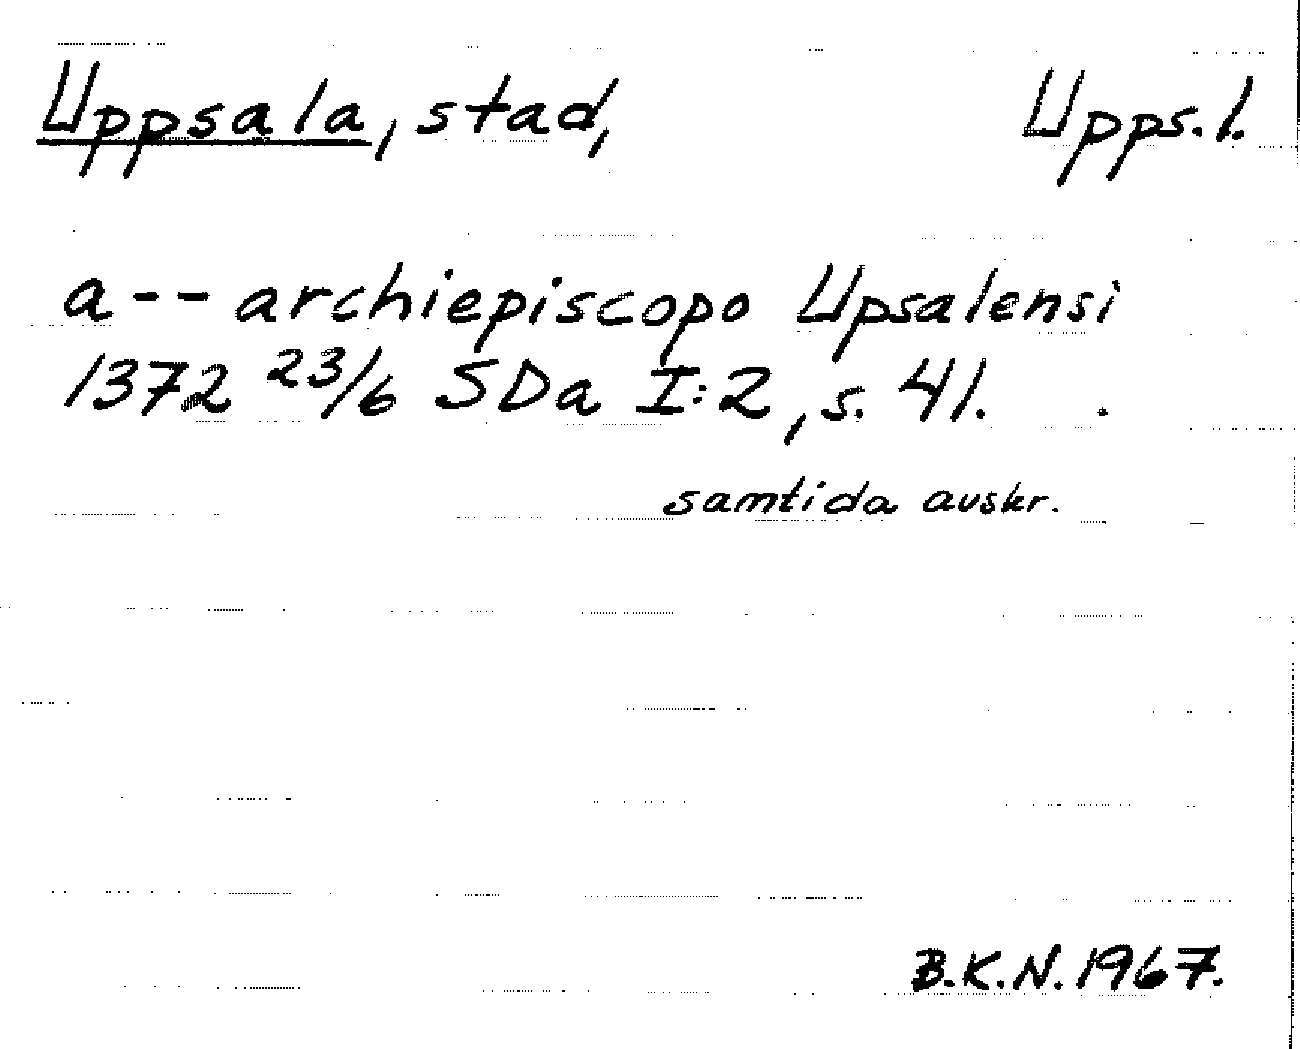 Uppsala, stad, Upps. l.
a -- archiepiscopo Upsalensi
1372 23/6 SDa I:2, s. 41.
samtida avskr.
B.K.N. 1967.